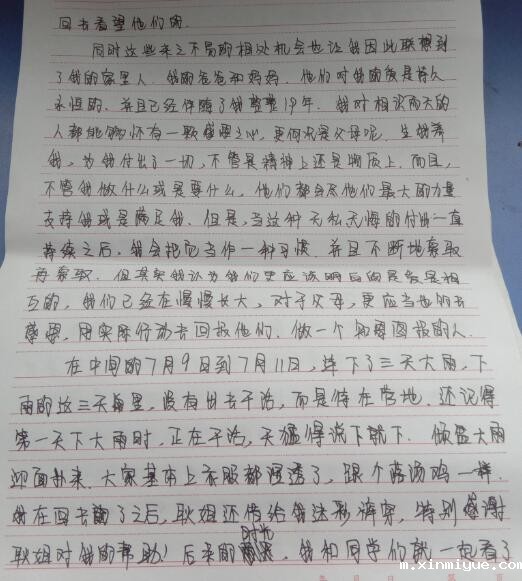 回去看望他们的.
同时这些来之不易的相处机会也让我因此联想到
了我的家里人.我的爸爸和妈妈.他们对我的爱是持久
永恒的.并且已经伴随了我整整19年.我对相识两天的
人都能够怀有一颗感恩之心,更何况是父母呢.生我养
我,为我付出了一切,不管是精神上还是物质上.而且,
不管我做什么或是要什么.他们都会尽他们最大的力量
支持我或是满足我.但是,当这种无私无悔的付出一直
持续之后,我会把它当作一种习惯.并且不断地索取
再索取.但其实我认为我们更应该明白的是爱是相
互的,我们已经在慢慢长大,对于父母,更应当也的去
感恩,用实际行动去回报他们.做一个知恩图报的人.
在中间的7月9日到7月11日,连下了三天大雨,下
雨的这三天里,没有出去干活,而是待在营地.还记得
第一天下大雨时,正在干活,天猛得说下就下.倾盆大雨
迎面扑来.大家基本上衣服都湿透了,跟个落汤鸡一样.
我在回去了之后,耿姐还传给我迷彩裤穿,特别感谢
耿姐对我的帮助!后来的时光,我和同学们就一起看了
m.xinmiyue.com